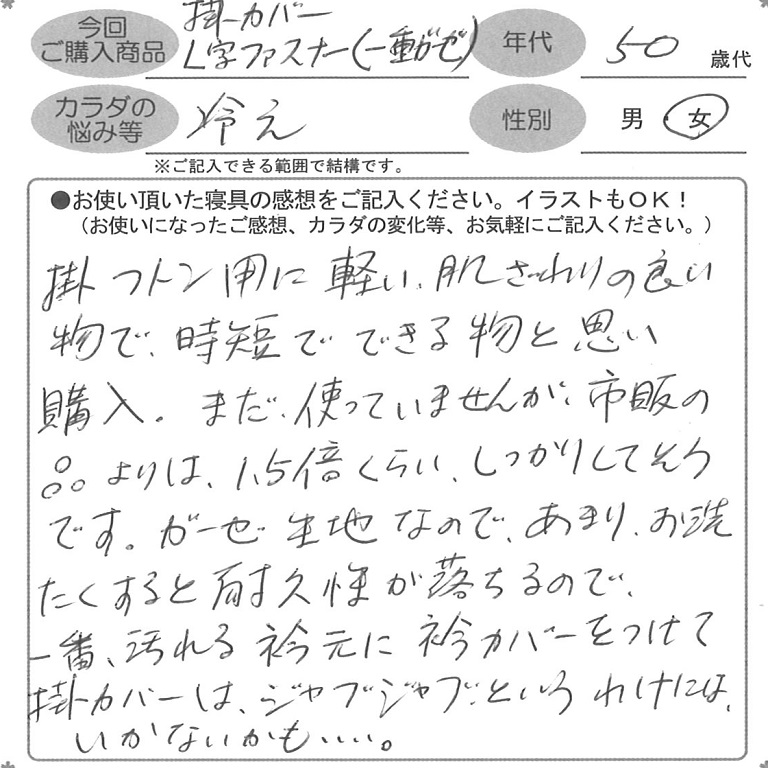 今回
ご購入商品
掛カバー
L字ファスナー(一重ガーゼ)
年代
50
歳代
カラダの
悩み等
冷え
性別
男・女
※ご記入できる範囲で結構です。
●お使い頂いた寝具の感想をご記入ください。イラストもOK!
(お使いになったご感想、カラダの変化等、お気軽にご記入ください。)
掛フトン用に軽い、肌ざわりの良い
物で、時短でできる物と思い
購入。まだ、使っていませんが、市販の
品よりは、1.5倍くらい、しっかりしてそう
です。ガーゼ生地なので、あまり、お洗
たくすると耐久性が落ちるので、
一番、汚れる衿元に衿カバーをつけて
掛カバーは、ジャブジャブというわけには、
いかないかも・・・・。